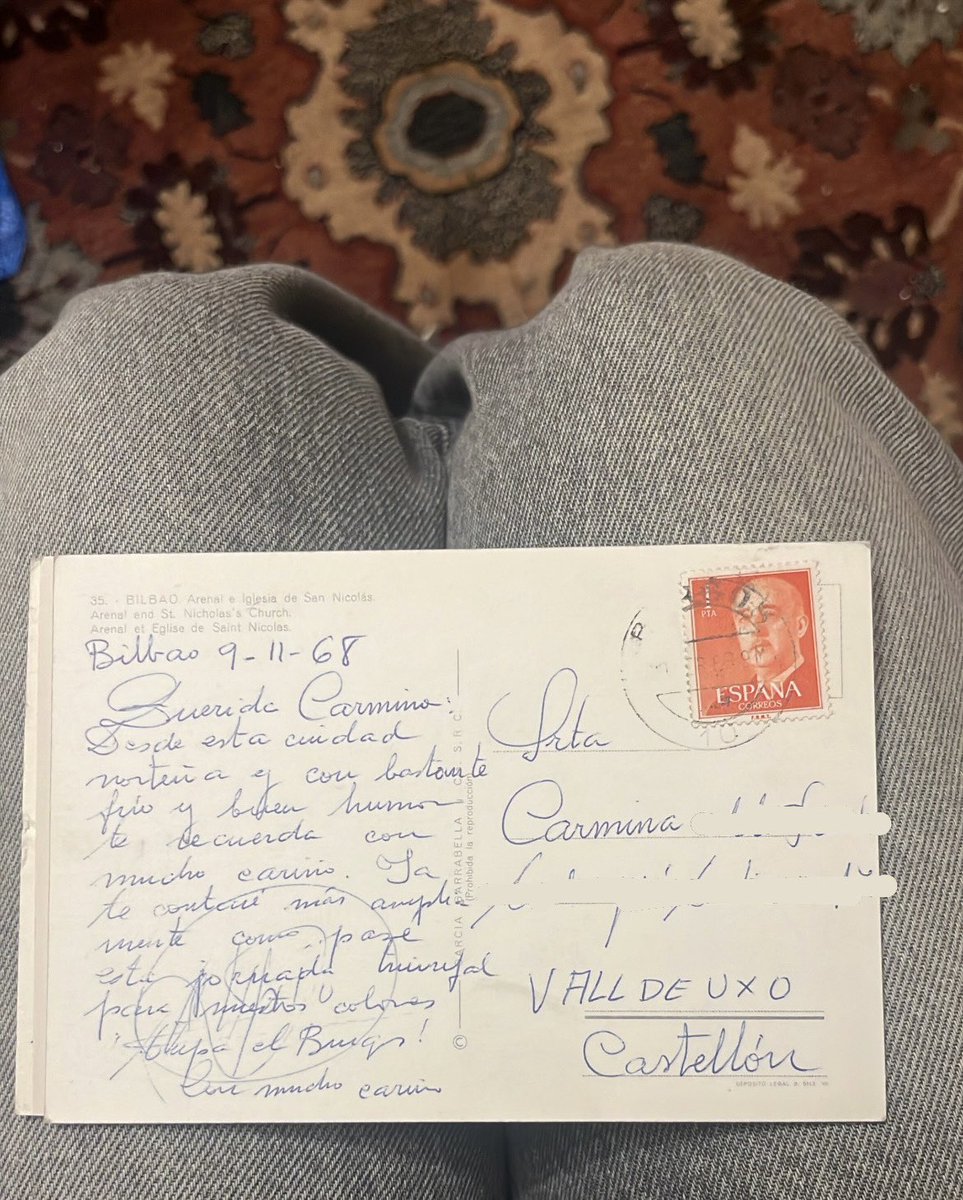 35. - BILBAO. Arenal e Iglesia de San Nicolás.
Arenal and St. Nicholas's Church.
Arenal et Eglise de Saint Nicolas.
Bilbao 9-11-68
Querida Carmina:
Desde esta ciudad
norteña y con bastante
frio y buen humor
te recuerda con
mucho cariño. Ya
te contaré más amplia
mente como pasé
esta jornada triunfal
para nuestros colores
¡Aupa el Burgos!
Con mucho cariño
GARCIA GARRABELLA Y CIA. S.R.C.
(Prohibida la reproducción)
©
1
PTA
ESPAÑA
CORREOS
F.N.M.T.
10
Srta
Carmina
VALL DE UXO
Castellón
DEPOSITO LEGAL B.